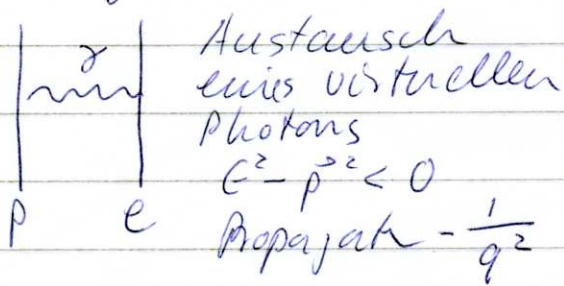 γ
Austausch
eines virtuellen
Photons
E² - p⃗² < 0
p e
Propagator - 1/q²